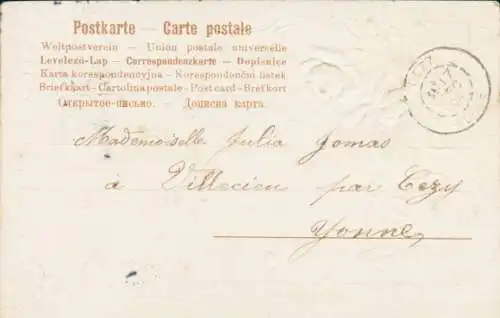 Postkarte — Carte postale
Weltpostverein — Union postale universelle
Levelező-Lap — Correspondenzkarte — Dopisnice
Karta korespondencyjna — Korespondenční lístek
Briefkaart — Cartolina postale — Post card — Brefkort
Открытое письмо. — Дописна карта.
CÉZY
Mademoiselle Julia Jomas
à Villecien par Cézy
Yonne